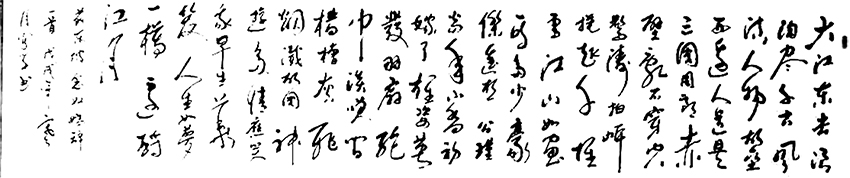 大江东去浪
淘尽千古风
流人物故垒
西边人道是
三國周郎赤
壁亂石穿空
驚涛拍岸
捲起千堆
雪江山如画
一时多少豪
傑遥想公瑾
当年小乔初
嫁了雄姿英
發羽扇纶
巾谈笑间
樯橹灰飛
烟滅故国神
遊多情應笑
我早生华
髮人生如夢
一樽還酹
江月
苏东坡念奴娇詞
一首戊戌年